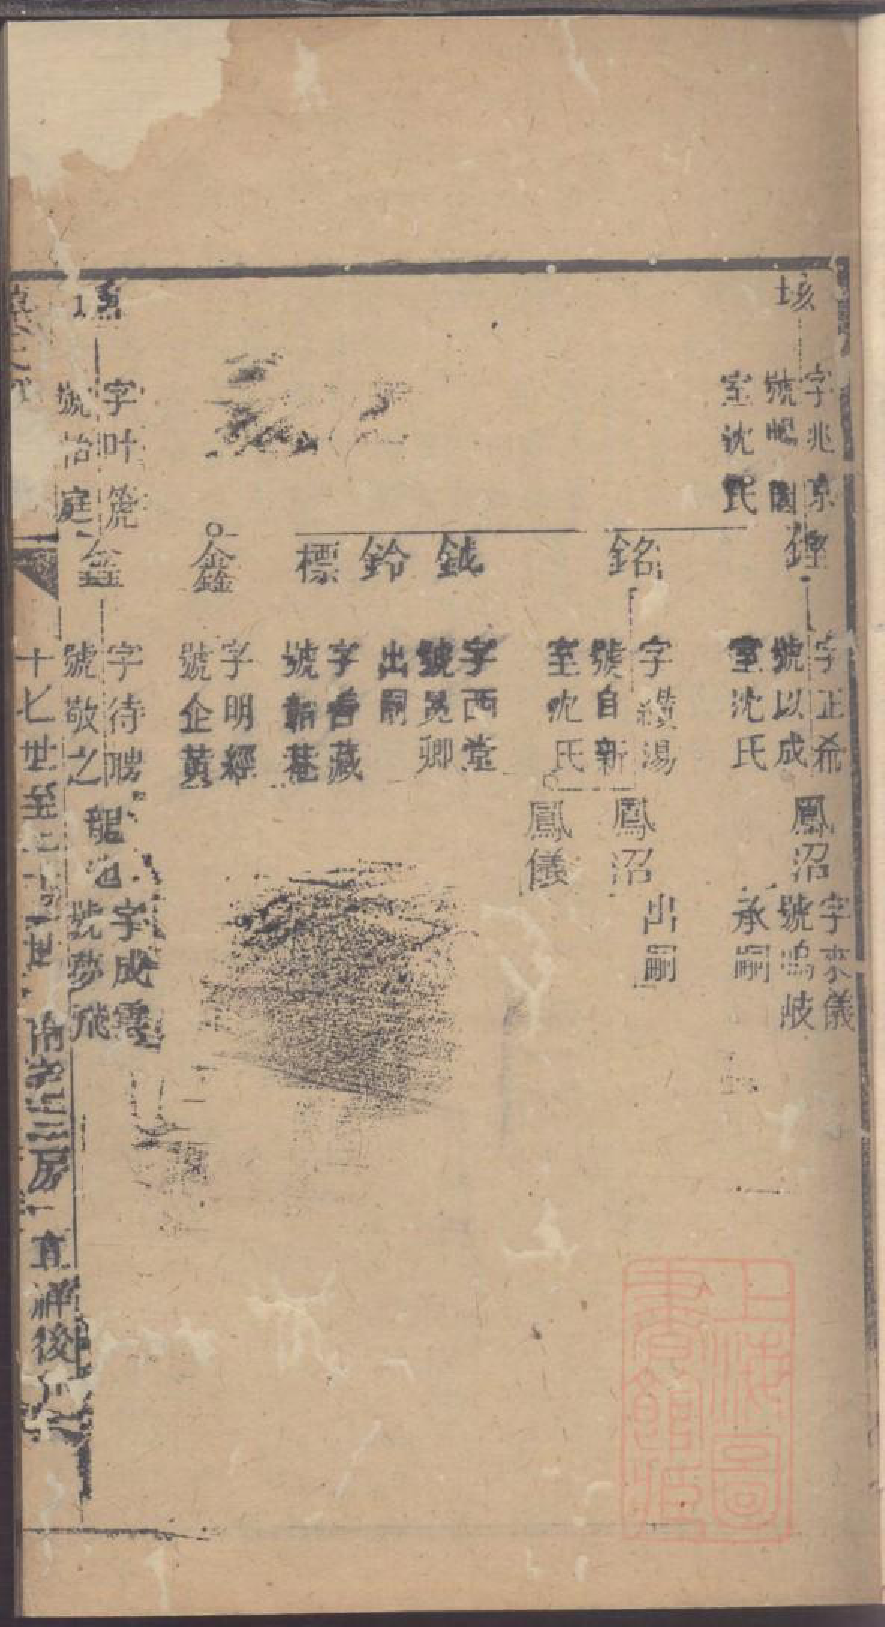 垓
字兆
號
室沈氏
鋞
字正希
號以成
室沈氏
鳳沼
字來儀
號鳴岐
承嗣
銘
字纘湯
號自新
室沈氏
鳳沼
出嗣
鳳儀
鉞
字西堂
號冕卿
鈴
出嗣
標
字善藏
號韜菴
鑫
字明經
號企黃
字叶箎
號怡庭
字待聘
號敬之
字成雲
號夢飛
十七世至二十世
房
祥後
上海圖
書館藏